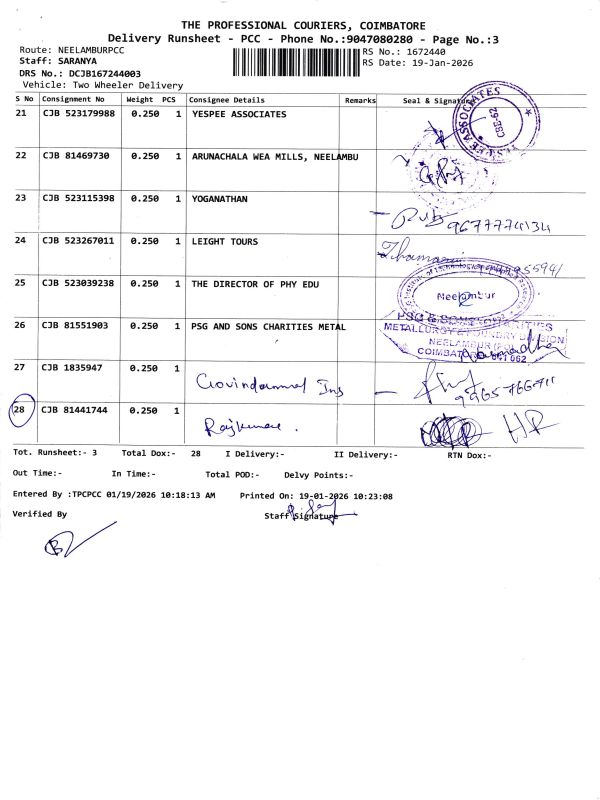 THE PROFESSIONAL COURIERS, COIMBATORE
Delivery Runsheet - PCC - Phone No.:9047080280 - Page No.:3
Route: NEELAMBURPCC
RS No.: 1672440
Staff: SARANYA
RS Date: 19-Jan-2026
DRS No.: DCJB167244003
Vehicle: Two Wheeler Delivery
S No Consignment No Weight PCS Consignee Details Remarks Seal & Signature
21 CJB 523179988 0.250 1 YESPEE ASSOCIATES
CBE-62
22 CJB 81469730 0.250 1 ARUNACHALA WEA MILLS, NEELAMBU
23 CJB 523115398 0.250 1 YOGANATHAN
9677774134
24 CJB 523267011 0.250 1 LEIGHT TOURS
25 CJB 523039238 0.250 1 THE DIRECTOR OF PHY EDU
Neelambur
26 CJB 81551903 0.250 1 PSG AND SONS CHARITIES METAL
PSG & SONS CHARITIES
METALLURGY & FOUNDRY DIVISION
NEELAMBUR
COIMBATORE 641 062
27 CJB 1835947 0.250 1 Govindammal Ins
28 CJB 81441744 0.250 1 Rajkumar.
Tot. Runsheet:- 3 Total Dox:- 28 I Delivery:- II Delivery:- RTN Dox:-
Out Time:- In Time:- Total POD:- Delvy Points:-
Entered By :TPCPCC 01/19/2026 10:18:13 AM Printed On: 19-01-2026 10:23:08
Verified By Staff Signature